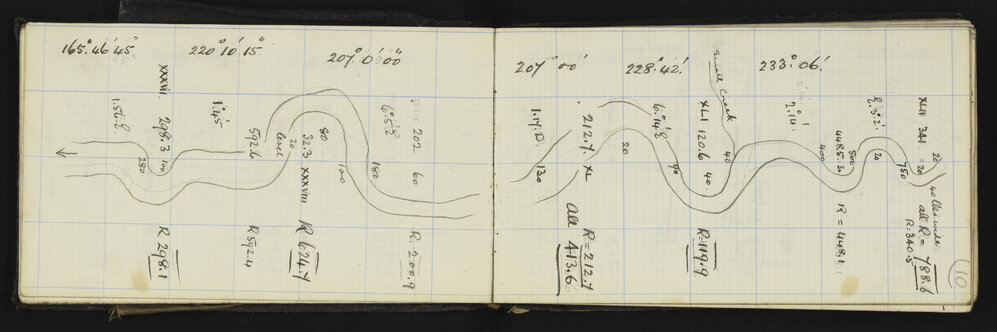 165° 46' 45"
220° 10' 15"
207° 0' 00"
XXXVII 298.3
1.56.E
280
100
R 298.1
1° 45'
592.6
level
20
R 592.4
80
32.3 XXXVIII
R 624.7
100
180
6.5.E
202
60
R. 200.9
207° 00'
228° 42'
233° 06'
1.17.D.
130
212.7. XL
R = 212.7
all 413.6
6.14'E
20
90
small creek
XLI 120.6 40.
40
R = 119.9
2.14.'
400
448.5. 20
500
R = 448.1.
20
750
XLII 341.
20
20
40 lks wide
all R = 788.6
R = 340.5
10